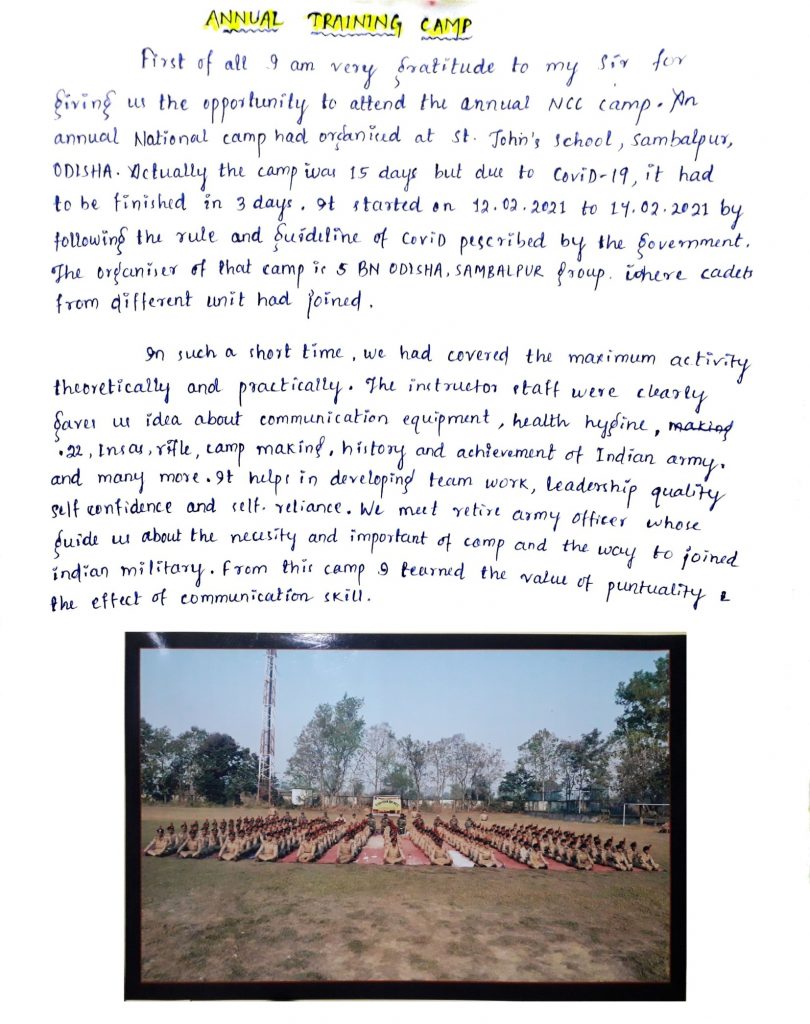 ANNUAL TRAINING CAMP
First of all I am very gratitude to my Sir for
giving us the opportunity to attend the annual NCC camp. An
annual National camp had organised at St. John's School, Sambalpur,
ODISHA. Actually the camp was 15 days but due to CoviD-19, it had
to be finished in 3 days. It started on 12.02.2021 to 14.02.2021 by
following the rule and guideline of Covid pescribed by the government.
The organiser of that camp is 5 BN ODISHA, SAMBALPUR group. where cadets
from different unit had joined.
In such a short time, we had covered the maximum activity
theoretically and practically. The instructor staff were clearly
gaves us idea about communication equipment, health hygine, making
.22, Insas, rifle, camp making, history and achievement of Indian army.
and many more. It helps in developing team work, leadership quality
self confidence and self-reliance. We meet retire army officer whose
guide us about the necesity and important of camp and the way to joined
indian military. From this camp I learned the value of puntuality &
the effect of communication skill.